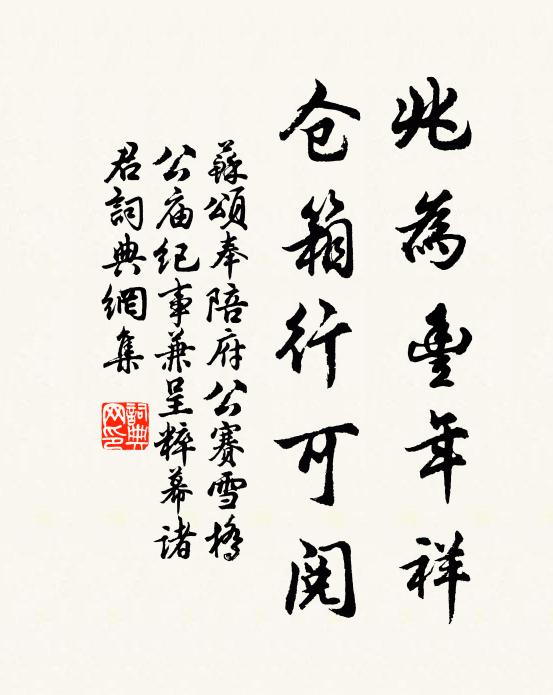 兆為豐年祥
仓箱行可閱
蘇頌奉陪府公賽雪橋
公庙纪事兼呈粹幕諸
君詞典網集
詞典
网印